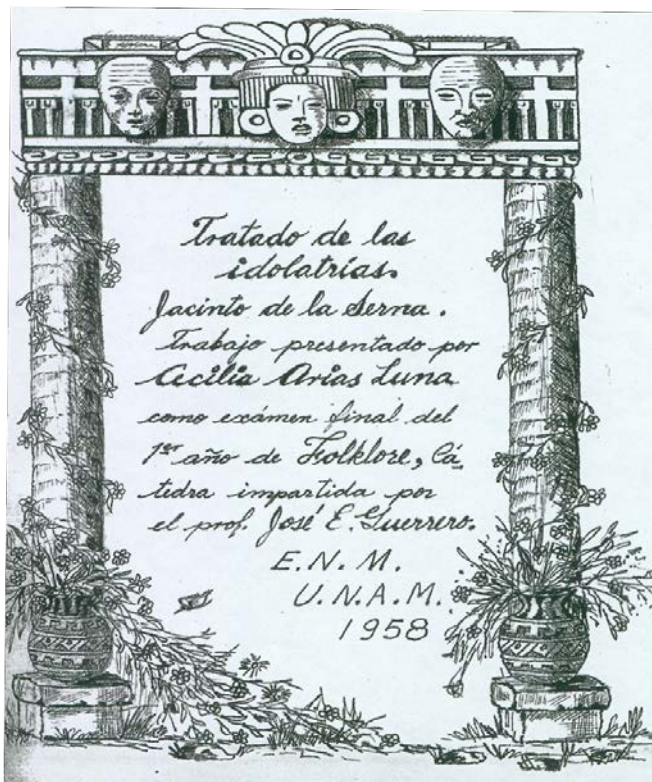 Tratado de las
idolatrías.
Jacinto de la Serna.
Trabajo presentado por
Cecilia Arias Luna
como exámen final del
1er año de Folklore, Cá-
tedra impartida por
el prof. José E. Guerrero.
E.N.M.
U.N.A.M.
1958